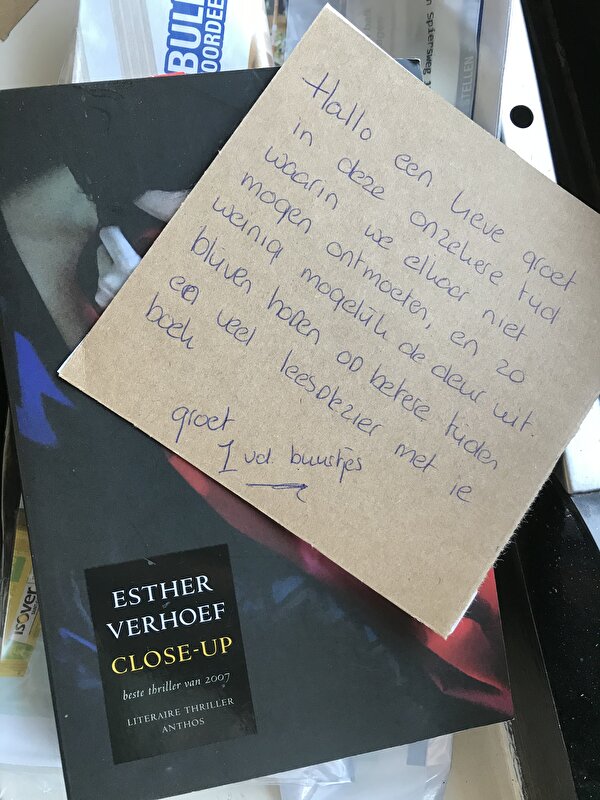 BULL
OORDEE
n Spiersweg 1
TELLEN
Hallo een lieve groet
in deze onzekere tijd
waarin we elkaar niet
mogen ontmoeten, en zo
weinig mogelijk de deur uit.
blijven hopen op betere tijden
en veel leesplezier met je
boek
groet
1 vd. buurtjes
isover
ESTHER
VERHOEF
CLOSE-UP
beste thriller van 2007
LITERAIRE THRILLER
ANTHOS